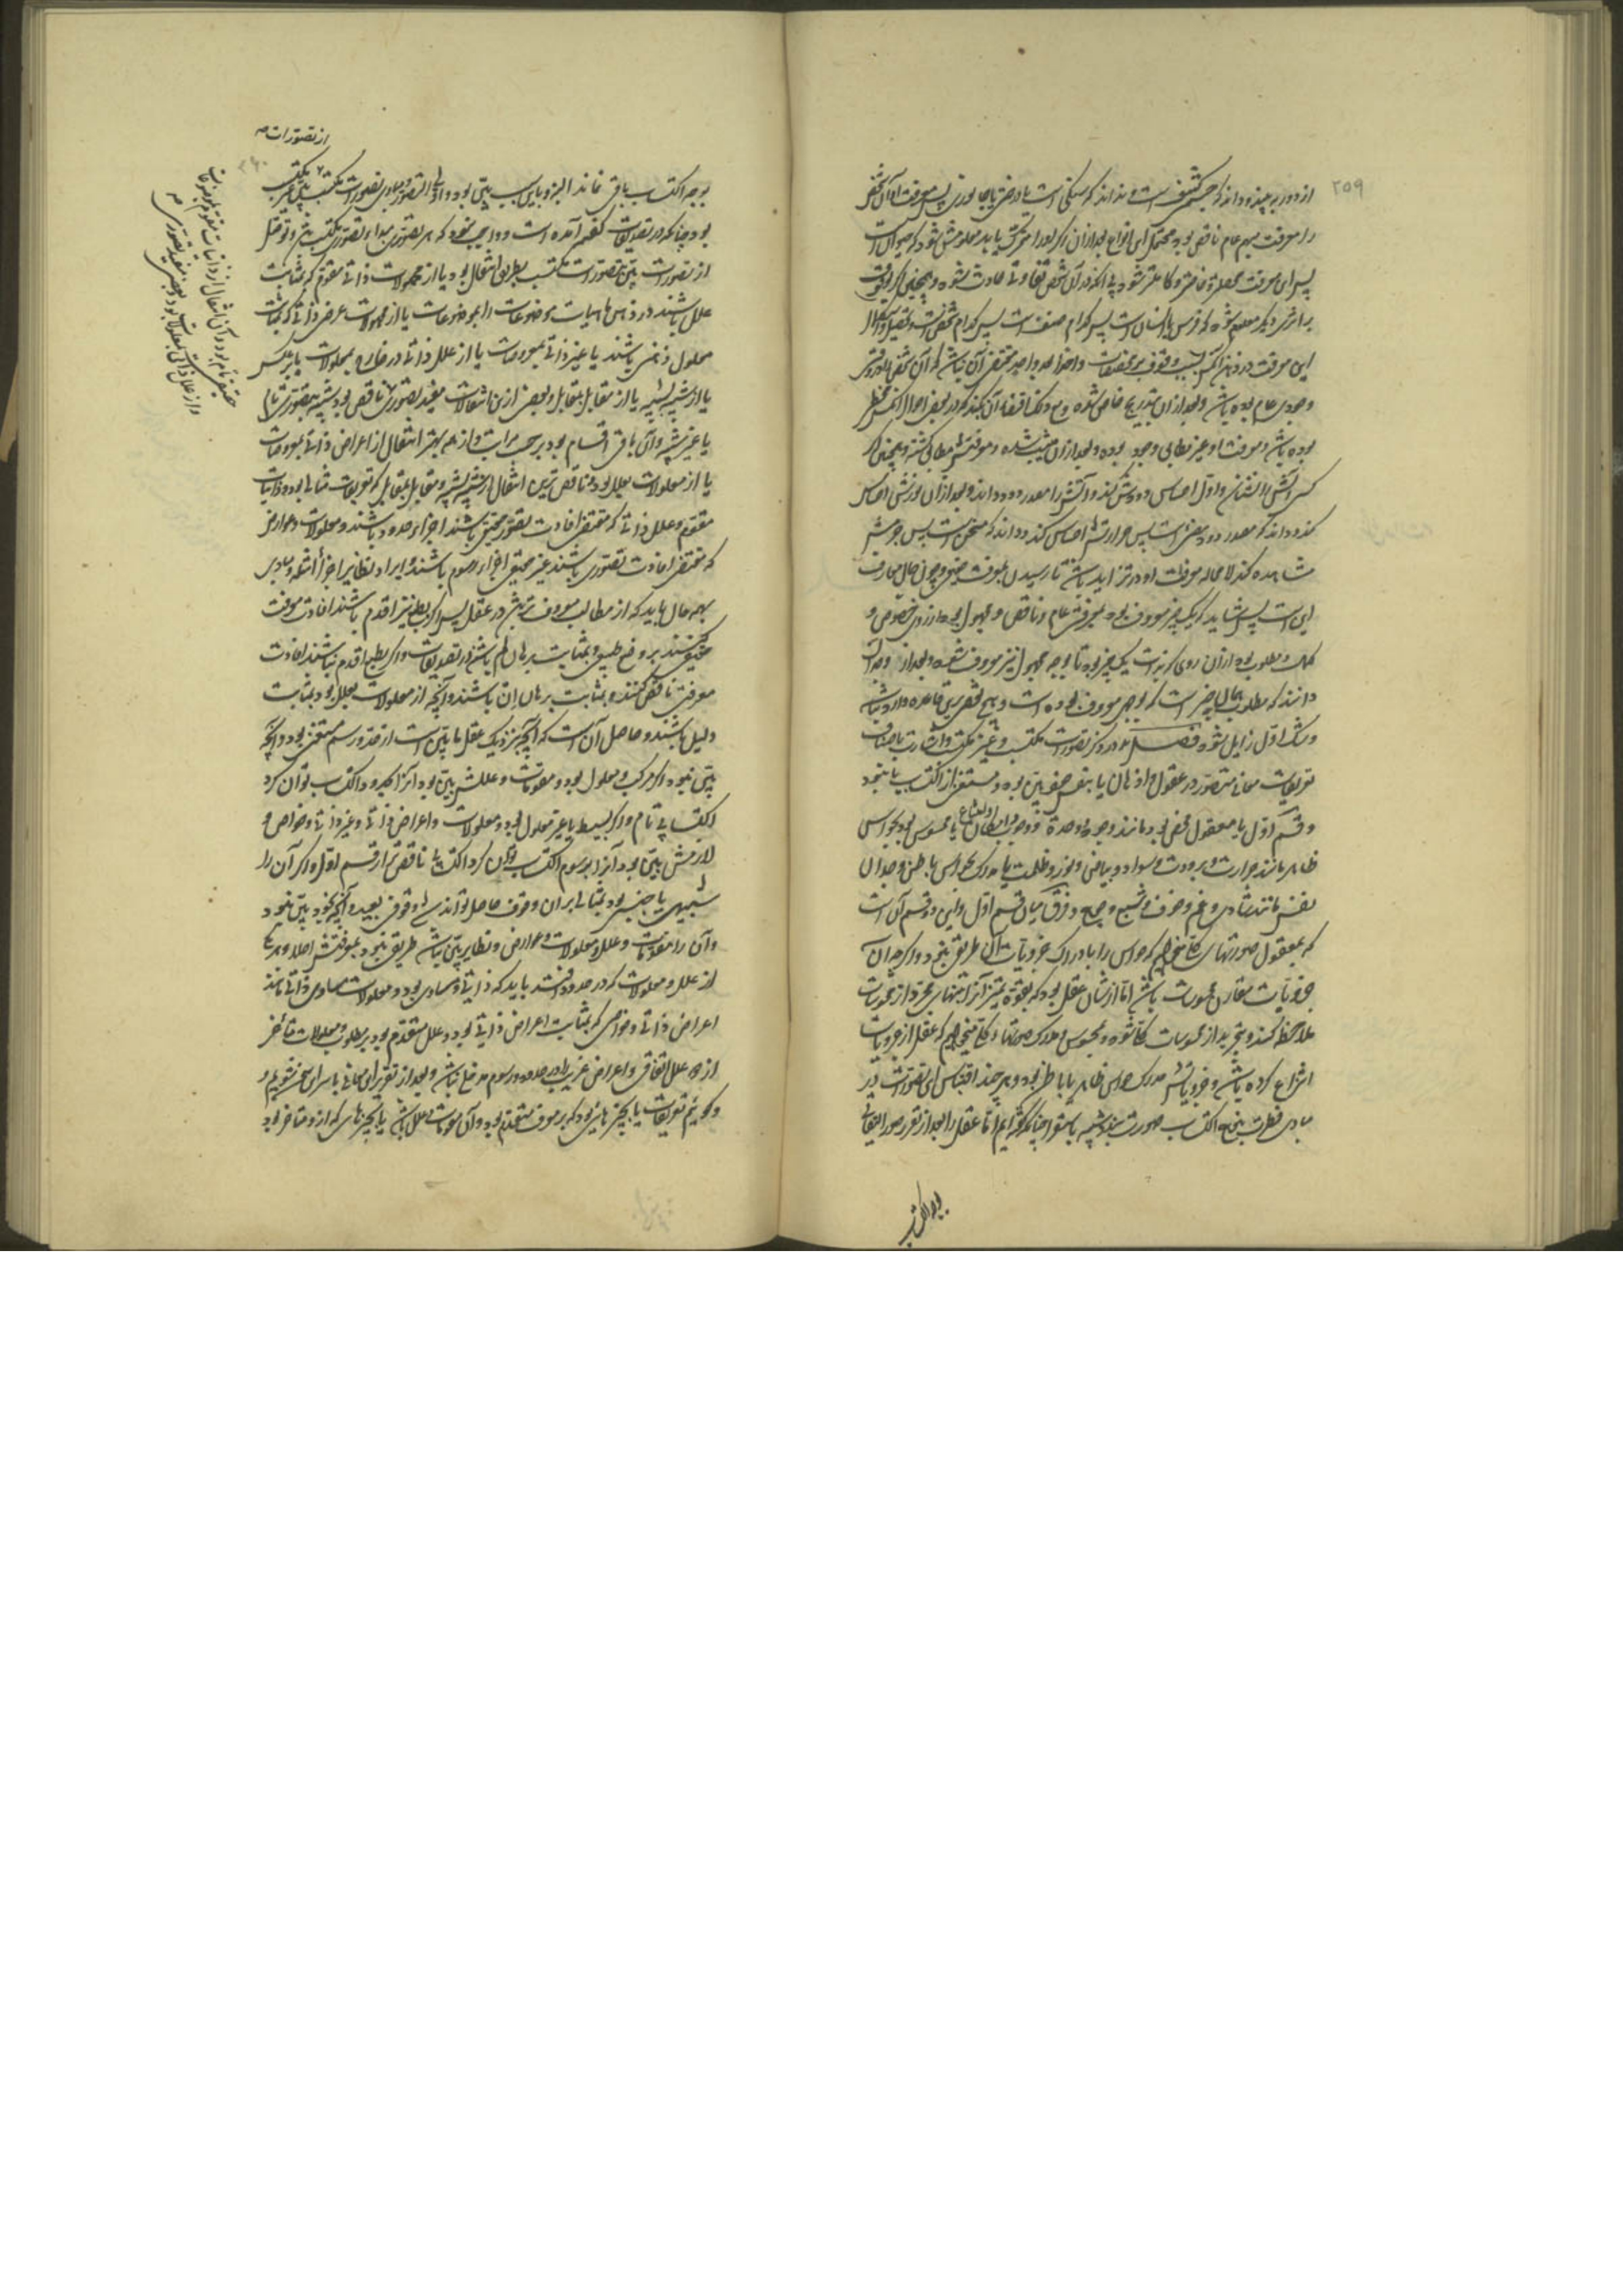 ۲۵۹
از دور ببیند و داند که جسمی کثیف است و نداند که سنگی است یا درختی یا جانوری پس معرفت او آن شخص
را معرفت مبهم عام ناقص بود و محتمل این انواع بعد از آن اگر او را متحرک یابد معلومش شود که حیوان است
پس این معرفت محصل‌تر و خاص‌تر و کامل‌تر شود بی آنکه در آن شخص تفاوتی حادث شود و همچنین اگر وقوف
بر اثری دیگر معلوم شود که فرس یا انسان است پس کدام صنف است پس کدام شخص است و تحصیل و استکمال
این معرفت در ذهن آنکس بسبب وقوف بر مخصصات واحدا بعد واحد مقتضی آن نباشد که آن شخص اول در وقتی
وجودی عام بوده باشد و بعد از آن بتدریج خاص شده و مع ذلک اقتضاء آن نکند که در بعضی احوال آنکس مخطی
بوده باشد و معرفت او غیر مطابق وجود بوده و بعد از آن مثبت شده و معرفتش مطابق گشته و همچنین اگر
کسی آتش را نشناسد و اول احساس دودش کند و آتش را مصدر دود داند و بعد از آن نورش احساس
کند و داند که مصدر دود مضیء است پس حرارتش احساس کند و داند که مسخن است پس جرمش
مشاهده کند لامحاله معرفت او در تزاید باشد تا رسیدن بمعرفت حقیقی و چون حال معارف
این است پس شاید که یک چیز معروف بود بمعرفتی عام و ناقص و مجهول بود از روی خصوص و
کمال و مطلوب بود از آن روی که بذات یک چیز بود تا بوجه مجهول نیز معروف شود و بعد از وجدان
دانند که مطلوب بحال چیزی است که بوجهی معروف بوده است و هیچ شخص برین قاعده وارد نباشد
و شک اول زایل شود فصل در ذکر تصورات مکتسب و غیر مکتسب و اشارت باصناف
تعریفات معانی متصور در عقول و اذهان یا بنفس خویش بین بود و مستغنی از اکتساب یا نبود
و قسم اول یا معقول محض بود مانند وجود و وحدة و وجوب و امکان و امتناع یا محسوس بود بحواس
ظاهر مانند حرارت و برودت و سواد و بیاض و نور و ظلمت یا مدرک بحواس باطن و وجدان
نفس مانند شادی و غم و خوف و شبع و جوع و فرق میان قسم اول و این دو قسم آن است
که بمعقول صورتهای کلی میخواهیم که حواس را بادراک جزویات آن طریق نبود و اگرچه آن
جزویات مقارن محسوسات باشد اما از شأن عقل بود که بقوة تمیز آنرا تنها و مجرد از محسوسات
ملاحظه کند و تجرید از محسوسات کلی شود و محسوس و مدرک صورتهاء کلی میخواهیم که عقل از جزویات
انتزاع کرده باشد و جزویاتش مدرک حواس ظاهر یا باطن بود و هر چند اقتباس این تصورات در
مبادی فطرت بنوعی اکتساب صورت بندد شبیه باستقرا چنانکه گفته‌ایم اما عقل را بعد از تقرر صور التفاتی
بوجه اکتساب
بوجه اکتساب باقی نماند البته و باین سبب بین بود و اوائل تصور و مبادی تصورات مکتسب بین غیر مکتسب
از تصورات صح
بود چنانکه در تصدیقات گفته آمده است و واجب نبود که هر تصوری مبداء تصوری مکتسب باشد و توصل
از تصورات بین بتصورات مکتسب بطریق انتقال بود یا از محمولات ذاتی مقوم که بمثابت
علل باشند در ذهن ماهیات موضوعات را بموضوعات یا از محمولات عرضی ذاتی که بمثابت
معلول ذهنی باشند یا غیر ذاتی بمعروضات یا از علل ذاتی در خارج بمعلولات یا بر عکس
یا از شبیه بشبیه یا از مقابل بمقابل و بعضی ازین انتقالات مفید تصوری ناقص بود شبیه بتصوری تام
یا غیر شبیه و آن باقی اقسام بود بر حسب مراتب و از همه بهتر انتقال از اعراض ذاتی بمعروضات
یا از معلولات بعلل بود و ناقص‌ترین انتقال از شبیه بشبیه و مقابل بمقابل که تعریفات مثالی بود و ذاتیات
مقوم و علل ذاتی که مقتضی افادت تصور حقیقی باشند اجزاء حدود باشند و معلولات و عوارض
که مقتضی افادت تصوری باشند غیر حقیقی اجزاء رسوم باشند و ایراد نظایر اجزاء امثله و مبادی
بهمه حال باید که از مطالب معروف‌تر باشد در عقل پس اگر بطبع نیز اقدم باشند افادت معرفت
حقیقی کنند بر وضع طبیعی و بمثابت برهان لم باشند از تصدیقات و اگر بطبع اقدم نباشند افادت
معرفتی ناقص کنند و بمثابت برهان ان باشند و آنچه از معلولات بعلل بود بمثابت
دلیل باشند و حاصل آن است که آنچه بنزدیک عقل ما بین است از حد و رسم مستغنی بود و آنچه
بین نبود و اگر مرکب و معلول بود و مقومات و عللش بین بود آنرا بحد و اکتساب توان کرد
اکتسابی تام و اگر بسیط یا غیر معلول بود و معلولات و اعراض ذاتی و غیر ذاتی و خواص و
لوازمش بین بود آنرا برسوم اکتساب توان کرد اکتسابی ناقص‌تر از قسم اول و اگر آن را
شبیهی یا جنسی بود بمثالی بر آن وقوف حاصل تواند شد وقوفی بعید و آنچه بخود بین نبود
و آن را مقومات و علل و معلولات و عوارض و نظایر بین نباشد طریقی نبود بمعرفتش اصلا و هر یک
از علل و معلولات که در حدود افتد باید که ذاتی و مساوی بود و معلولات مساوی ذاتی مانند
اعراض ذاتی و خواص که بمثابت اعراض ذاتی بود و علل متقدم بود بر مطلوب و معلولات متأخر
از و علل اتفاقی و اعراض غریب را در حدود و رسوم مدخلی نباشد و بعد از تقریر این معانی با سر سخن شویم و
و گوئیم تعریفات یا بچیزهایی بود که بر معرف متقدم بود و آن مقومات و علل باشد یا بچیزهای که ازو متأخر بود
حقیقی تام بود و آن انتقال از ذاتیات مقوم بمعروضات
و از علل ذاتی بمعلولات بود و بعضی مفید تصوری صح